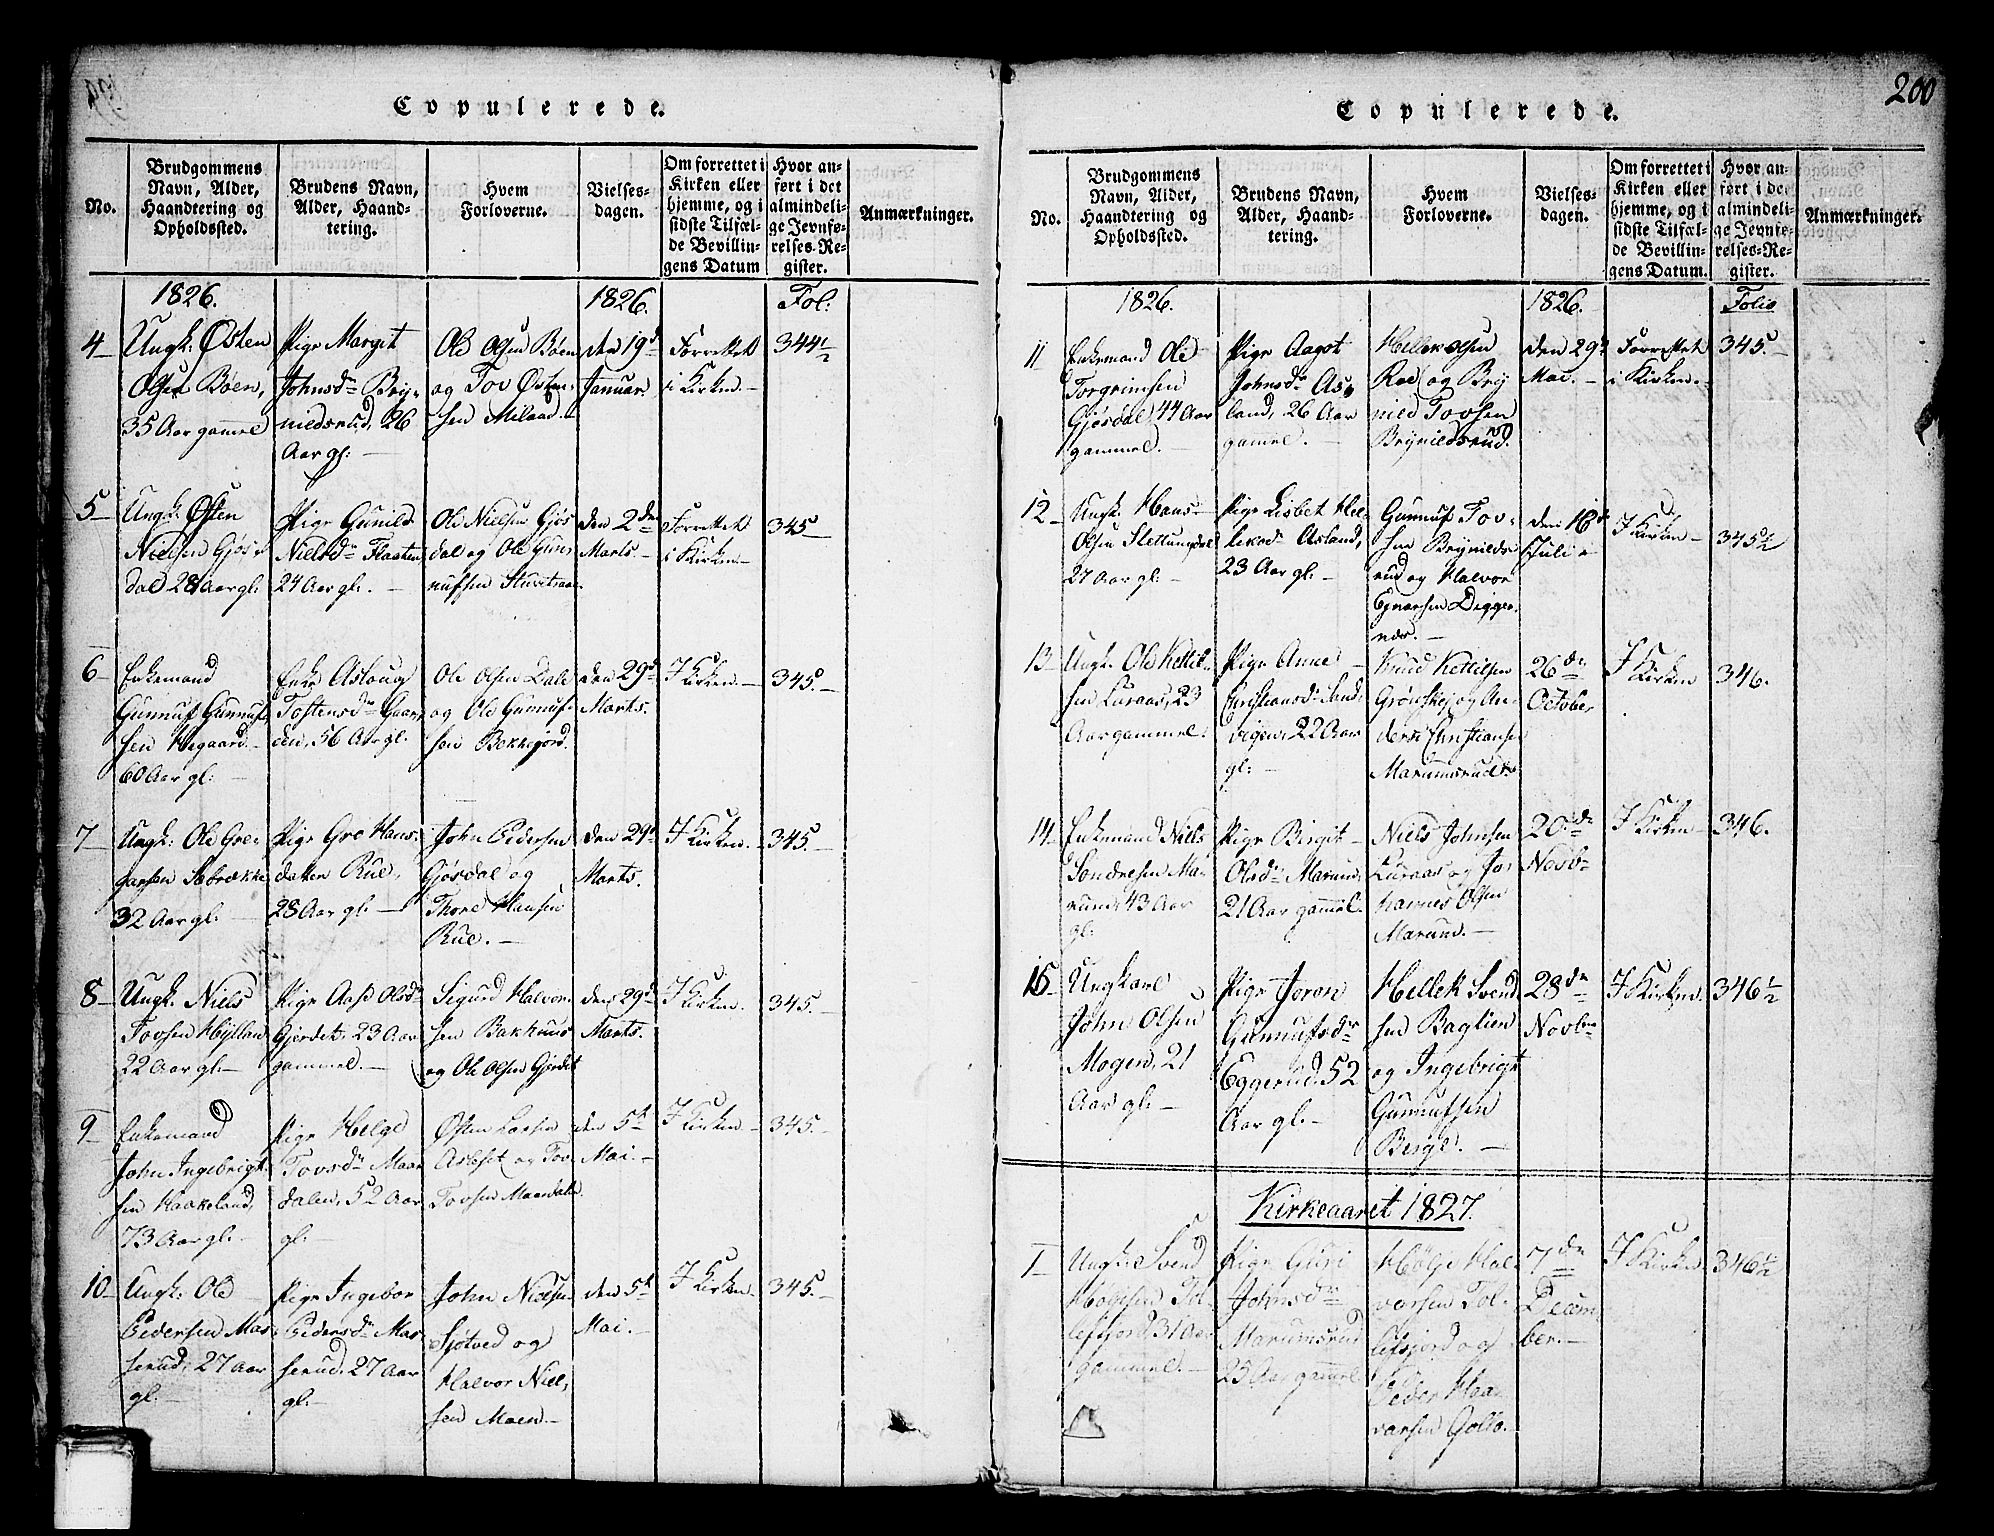 Copulerede.
No.
Brudgommens
Navn, Alder,
Haandtering og
Opholdssted.
Brudens Navn,
Alder, Haand-
tering.
Hvem
Forloverne.
Vielses-
dagen.
Om forrettet i
Kirken eller
hjemme, og i
sidste Tilfæl-
de Bevillin-
gens Datum
Hvor an-
ført i det
almindeli-
ge Jevnfø-
relses-Re-
gister.
Anmærkninger.
1826.
1826.
Fol:
4
Ungk: Østen
Olsen Bøen,
35 Aar gammel
Pige Margit
Johnsdr Bry-
nildsrud, 26
Aar gl: —
Ole Olsen Bøen
og Tov Østen-
sen Milaad
den 19de
Januar
Forrettet
i Kirken. —
344½
5
Ungk: Østen
Nielsen Gjøs-
dal 28 Aar gl:
Pige Gunild
Nielsdr Flaaten
24 Aar gl. —
Ole Nielsen Gjøs
dal og Ole Gun-
nufsen
den 2den
Marts —
Forrettet
i Kirken —
345
6
Enkemand
Gunnuf Gunnuf-
sen Hegaard —
60 Aar gl: —
Enke Aslaug
Tostensdr Gaar-
den, 56 Aar gl.
Ole Olsen Dale
og Ole Gunnuf-
sen Bekkejord.
den 29de
Marts.
I Kirken. —
345. —
7
Ungk: Ole Gre-
garsen Sebrekke
32 Aar gl: —
Pige Gro Hans-
datter Rue,
28 Aar gl: —
John Pedersen
Gjøsdal og
Thore Hansen
Rue. —
den 29de
Marts.
I Kirken. —
345. —
8
Ungk: Niels
Tovsen Hylland
22 Aar gl: —
Pige Aase Olsdr
Gjerdet, 23 Aar
gammel. —
Sigurd Halvor-
sen Bakhuus
og Ole Olsen Gjerdet
den 29de
Marts.
I Kirken.
345. —
9
Enkemand
John Ingebrigt-
sen Haakeland,
73 Aar gl. —
Pige Helge
Tovsdr Maar
dalen, 52 Aar
gl: —
Østen Larsen
og Tov
Tovsen Maardalen
den 5te
Mai. —
I Kirken —
345. —
10
Ungk: Ole —
Pedersen Mas-
serud, 27 Aar
gl. —
Pige Ingebor
Pedersdr Mas-
serud. 27 Aar
gl: —
John Nielsen
Sjotved og
Halvor Niel-
sen Moen. —
den 5te
Mai. —
I Kirken —
345. —
200
Copulerede.
No.
Brudgommens
Navn, Alder,
Haandtering og
Opholdssted.
Brudens Navn,
Alder, Haand-
tering.
Hvem
Forloverne.
Vielses-
dagen.
Om forrettet i
Kirken eller
hjemme, og i
sidste Tilfæl-
de Bevillin-
gens Datum.
Hvor an-
ført i det
almindeli-
ge Jevnfø-
relses-Re-
gister.
Anmærkninger.
1826.
1826.
Folio
11
Enkemand Ole
Torgrimsen
Gjøsdal, 44 Aar
gammel. —
Pige Aagot
Johnsdr As-
land, 26 Aar
gammel. —
Hellek Olsen
Roe og Bry
nild Tovsen
Brynildsrud.
den 29de
Mai. —
Forrettet
i Kirken. —
345. —
12
Ungk: Hans
Olsen
27 Aar gl: —
Pige Lisbet Hel-
leksdr Asland,
23 Aar gl. —
Gunnuf Tov-
sen Brynilds-
rud og Halvor
Egnarsen Digger-
nes. —
den 16de
Juli —
I Kirken —
345½
13
Ungk: Ole Kettil-
sen Luraas, 23
Aar gammel.
Pige Anne —
Christiansdr Sand-
vigen, 22 Aar
gl: —
Knud Kettilsen
Grønskej og An-
ders Christiansen
Marumsrud
26de
October
I Kirken
346.
14
Enkemand Niels
Sondresen Ma-
rum, 43 Aar
gl:
Pige Birgit —
Olsdr Marum,
21 Aar gammel.
Niels Johnsen
Luraas og Jo-
hannes Olsen
Marum. —
20de
Novbr
I Kirken —
346.
15
Ungkarl
John Olsen
Mogen, 21
Aar gl: —
Pige Joron
Gunnufsdr
Eggerud. 52
Aar gl. —
Hellek Svend
sen Baglien
og Ingebrigt
Gunnufsen
Berge. —
28de
Novbr
I Kirken.
346½
Kirkeaaret 1827.
1
Ungk: Svend
Høljesen Tol-
lefsjord, 31 Aar
gammel. —
Pige Guri
Johnsdr
Marumsrud
25 Aar gammel.
Hølje Hal-
vorsen Tol-
lefsjord og
Peder Hal-
varsen Gollo. —
7de
Decem
ber. —
I Kirken.
346½